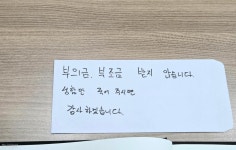 부의금, 부조금 받지 않습니다.
성함만 적어 주시면
감사하겠습니다.